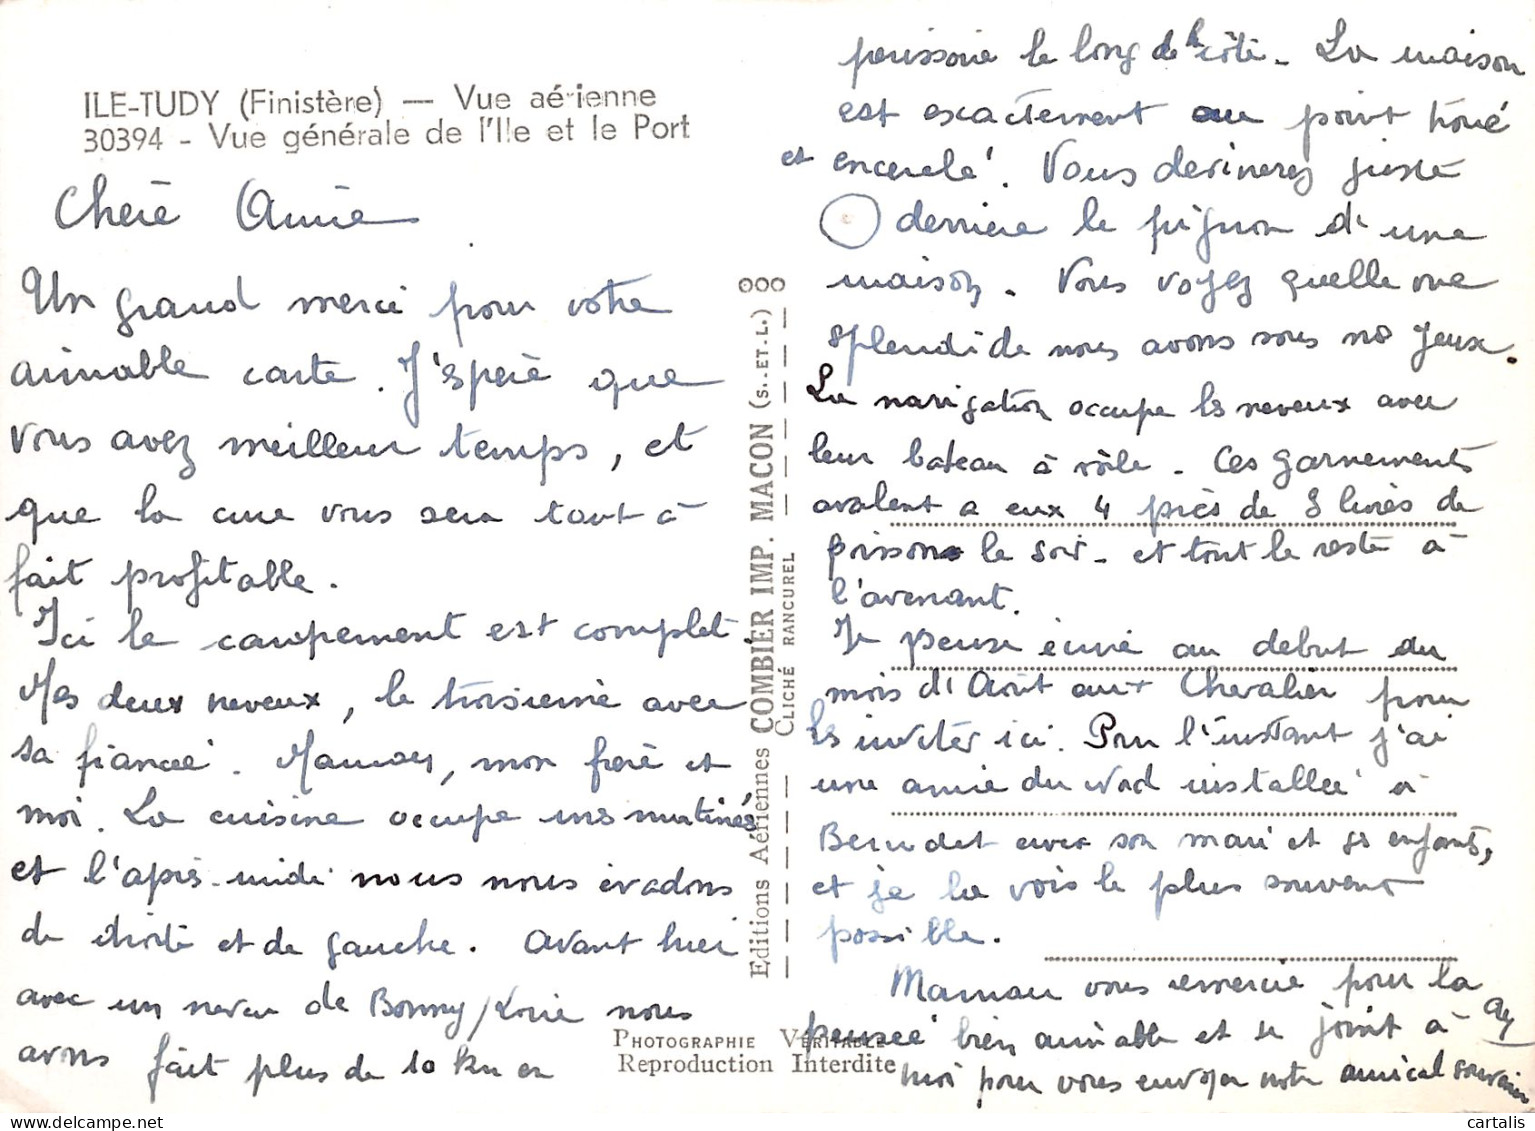 ILE-TUDY (Finistère) — Vue aérienne
30394 - Vue générale de l'Ile et le Port
Chère Amie
Un grand merci pour votre
aimable carte. J'espère que
vous avez meilleur temps, et
que la cure vous sera tout à
fait profitable.
Ici le campement est complet.
Mes deux neveux, le troisième avec
sa fiancée. Maman, mon frère et
moi. La cuisine occupe mes matinées
et l'après-midi nous nous évadons
de droite et de gauche. Avant hier
avec un neveu de Bonny/Loire nous
avons fait plus de 10 km en
Editions Aériennes COMBIER IMP. MACON (S.-ET-L.)
CLICHÉ RANCUREL
PHOTOGRAPHIE VÉRITABLE
Reproduction Interdite
périssoire le long de la côte. La maison
est exactement au point troué
et encerclé. Vous devinerez juste
derrière le pignon d'une
maison. Vous voyez quelle vue
splendide nous avons sous nos yeux.
La navigation occupe les neveux avec
leur bateau à voile. Ces garnements
avalent a eux 4 près de 8 livres de
poisson le soir. et tout le reste à
l'avenant.
Je pense écrire au debut du
mois d'Août aux Chevalier pour
les inviter ici. Pour l'instant j'ai
une amie du Nord installée à
Benodet avec son mari et ses enfants,
et je la vois le plus souvent
possible.
Maman vous remercie pour la
pensée bien aimable et se joint à
moi pour vous envoyer notre amical souvenir
cartalis